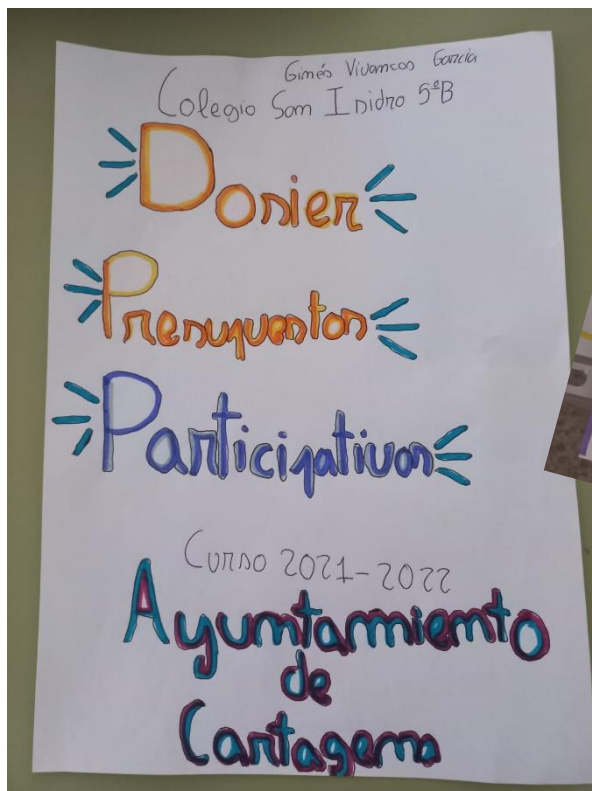 Ginés Vivancos García
Colegio San Isidro 5ºB
Dosier
Presupuestos
Participativos
Curso 2021-2022
Ayuntamiento
de
Cartagena